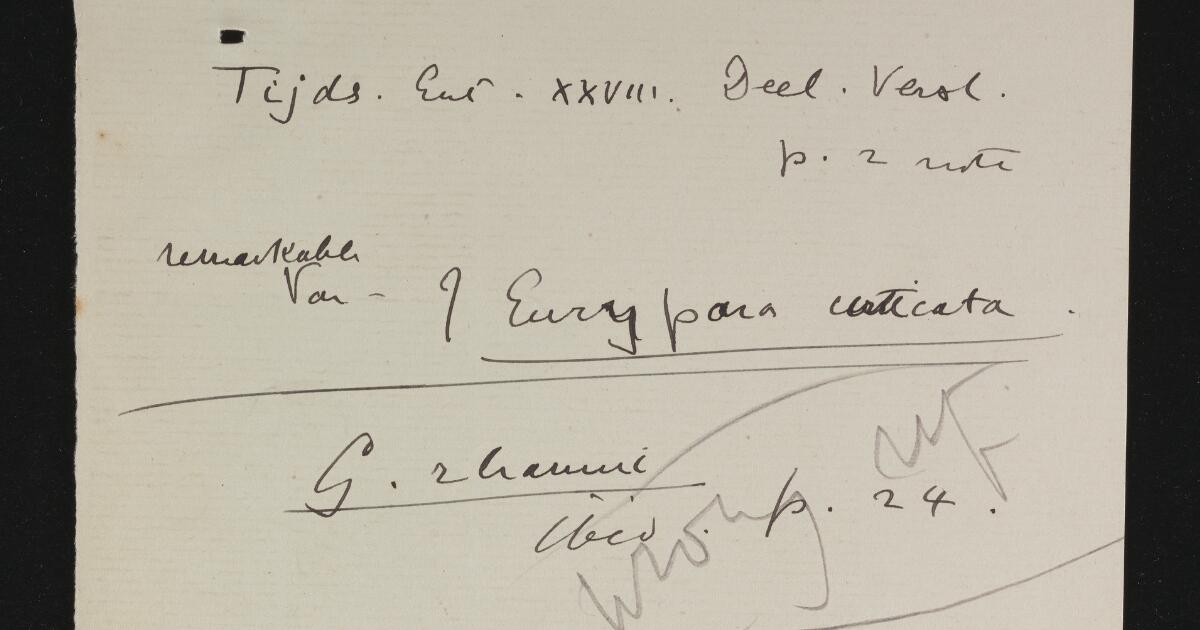 Tijds. Ent. XXVIII. Deel. Versl.
p. 2 note
remarkable
Var - of Eurrypara urticata.
G. rhamni
ibid. p. 24.
wrong